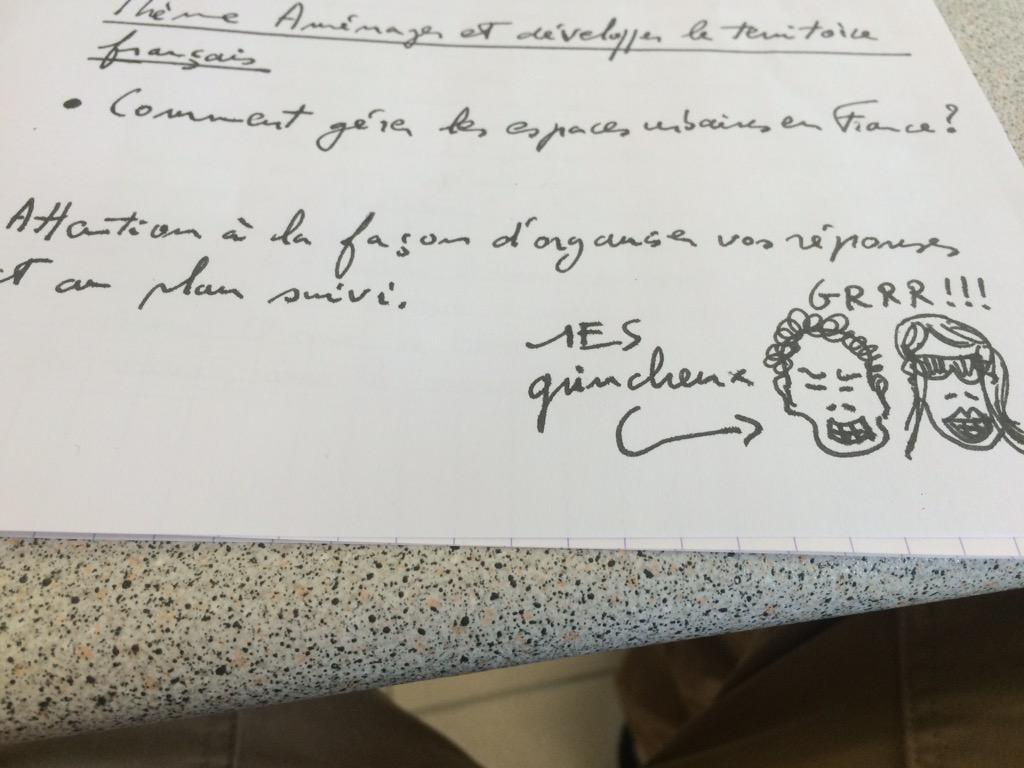 Thème Aménager et développer le territoire
français
• Comment gérer les espaces urbaines en France?
Attention à la façon d'organiser vos réponses
et au plan suivi.
GRRR!!!
1ES
grincheux